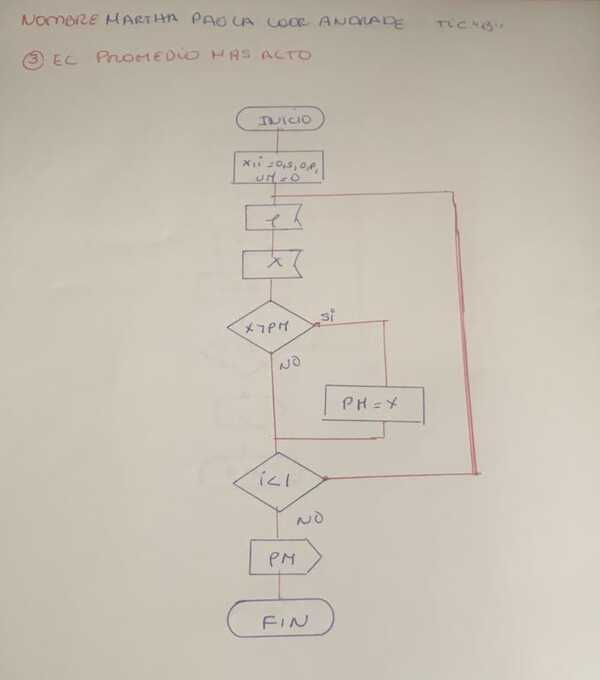 NOMBRE MARTHA PAOLA LOOR ANDRADE TIC "B"
③ EL PROMEDIO MAS ALTO
INICIO
X, i = 0, S, 0, P,
UM = 0
X
X>PM
Si
NO
PM = X
i<1
NO
PM
FIN